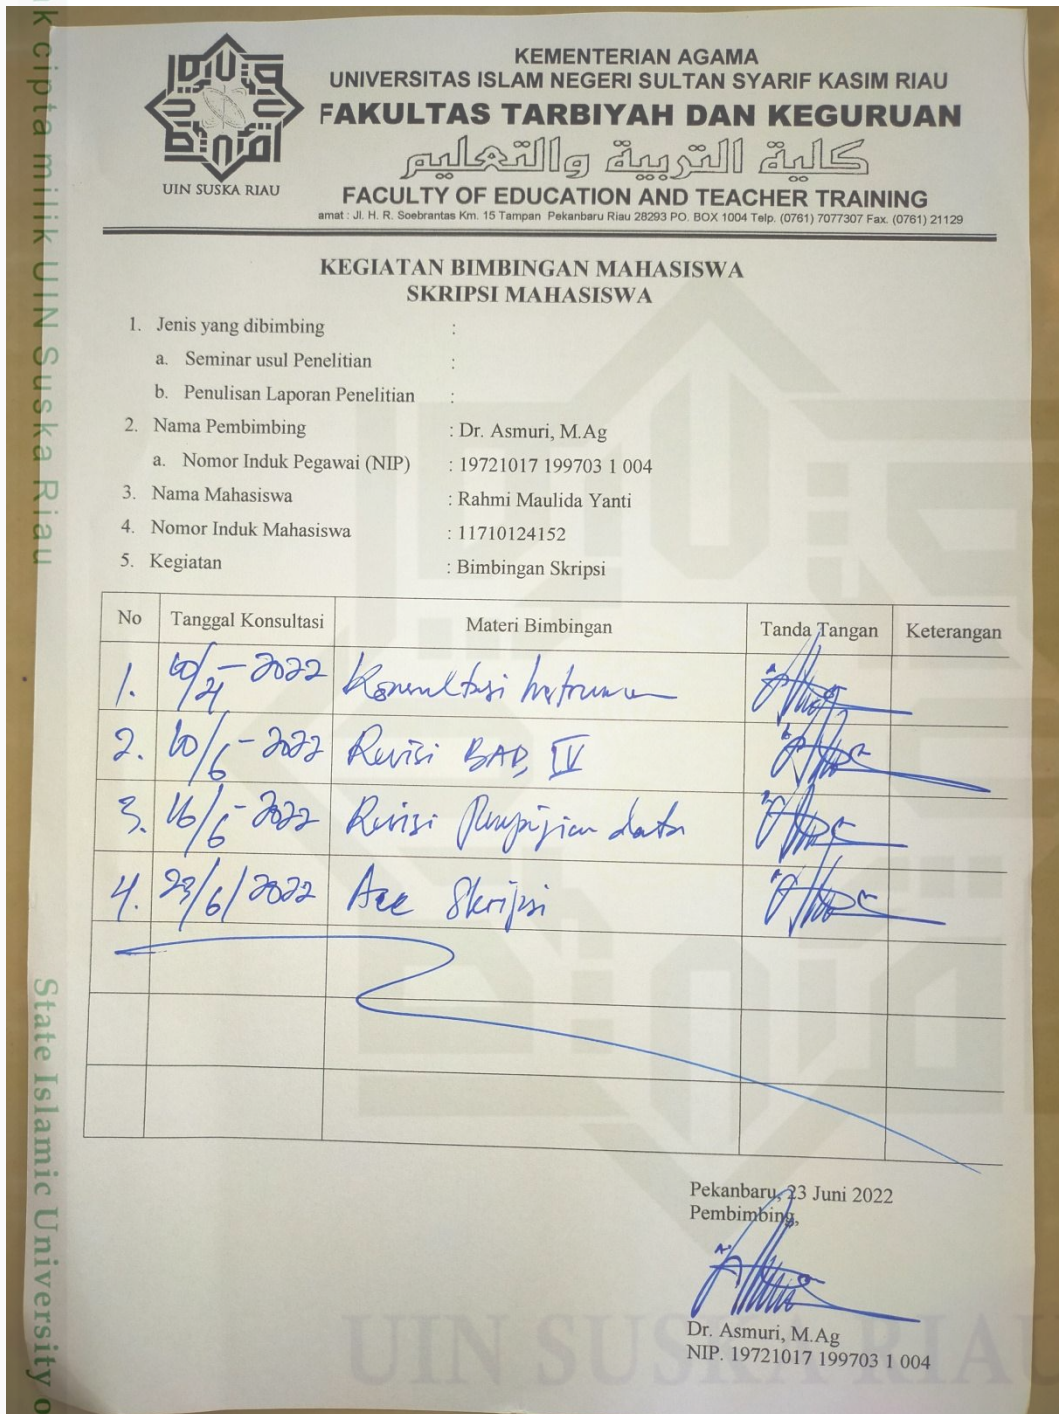 KEMENTERIAN AGAMA
UNIVERSITAS ISLAM NEGERI SULTAN SYARIF KASIM RIAU
FAKULTAS TARBIYAH DAN KEGURUAN
كلية التربية والتعليم
UIN SUSKA RIAU
FACULTY OF EDUCATION AND TEACHER TRAINING
amat : Jl. H. R. Soebrantas Km. 15 Tampan Pekanbaru Riau 28293 PO. BOX 1004 Telp. (0761) 7077307 Fax. (0761) 21129
KEGIATAN BIMBINGAN MAHASISWA
SKRIPSI MAHASISWA
1. Jenis yang dibimbing :
a. Seminar usul Penelitian :
b. Penulisan Laporan Penelitian :
2. Nama Pembimbing : Dr. Asmuri, M.Ag
a. Nomor Induk Pegawai (NIP) : 19721017 199703 1 004
3. Nama Mahasiswa : Rahmi Maulida Yanti
4. Nomor Induk Mahasiswa : 11710124152
5. Kegiatan : Bimbingan Skripsi
No Tanggal Konsultasi Materi Bimbingan Tanda Tangan Keterangan
1. 2022 Konsultasi Instrumen
2. 10/6-2022 Revisi BAB IV
3. 16/6-2022 Revisi Penyajian data
4. 23/6/2022 Acc Skripsi
Pekanbaru, 23 Juni 2022
Pembimbing,
Dr. Asmuri, M.Ag
NIP. 19721017 199703 1 004
UIN SUSKA RIAU
k cipta milik UIN Suska Riau
State Islamic University o